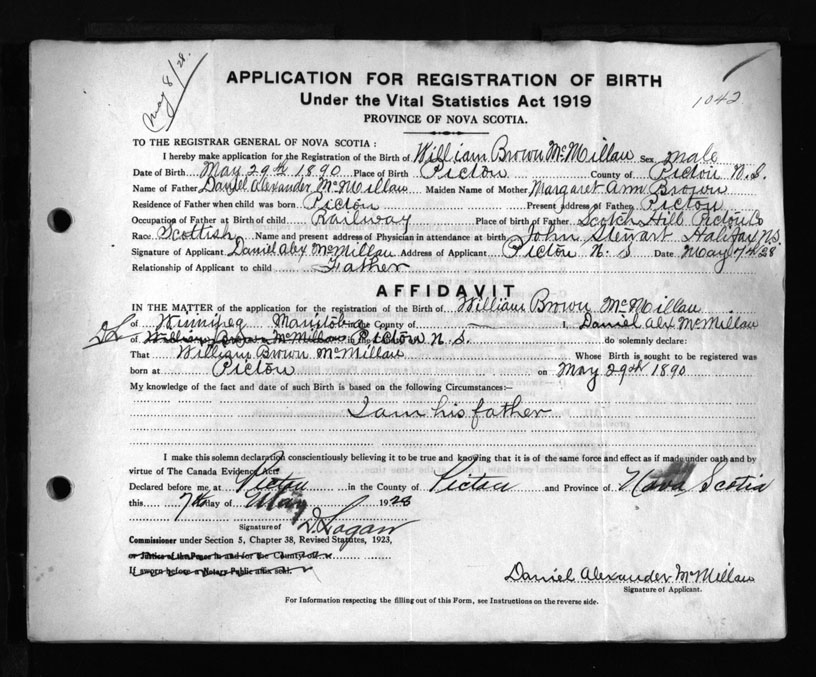 May 8/28.
APPLICATION FOR REGISTRATION OF BIRTH
Under the Vital Statistics Act 1919
1042
PROVINCE OF NOVA SCOTIA.
TO THE REGISTRAR GENERAL OF NOVA SCOTIA :
I hereby make application for the Registration of the Birth of William Brown McMillan Sex male
Date of Birth May 29th 1890 Place of Birth Pictou County of Pictou N.S.
Name of Father Daniel Alexander McMillan Maiden Name of Mother Margaret Ann Brown
Residence of Father when child was born Pictou Present address of Father Pictou
Occupation of Father at Birth of child Railway Place of birth of Father Scotch Hill Pictou Co
Race Scottish Name and present address of Physician in attendance at birth John Stewart Halifax N.S.
Signature of Applicant Daniel Alex McMillan Address of Applicant Pictou N. S Date May 7th 28
Relationship of Applicant to child Father
AFFIDAVIT
IN THE MATTER of the application for the registration of the Birth of William Brown McMillan
of Winnipeg Manitoba in the County of I, Daniel Alex McMillan
DL of William Brown McMillan in the Pictou N. S. do solemnly declare:
That William Brown McMillan Whose Birth is sought to be registered was
born at Pictou on May 29th 1890
My knowledge of the fact and date of such Birth is based on the following Circumstances:–
I am his father
I make this solemn declaration conscientiously believing it to be true and knowing that it is of the same force and effect as if made under oath and by
virtue of The Canada Evidence Act.
Declared before me at Pictou in the County of Pictou and Province of Nova Scotia
this 7th day of May 1928
Signature of D Logan
Commissioner under Section 5, Chapter 38, Revised Statutes, 1923,
or Justice of the Peace in and for the County of
If sworn before a Notary Public affix seal.
Daniel Alexander McMillan
Signature of Applicant.
For Information respecting the filling out of this Form, see Instructions on the reverse side.